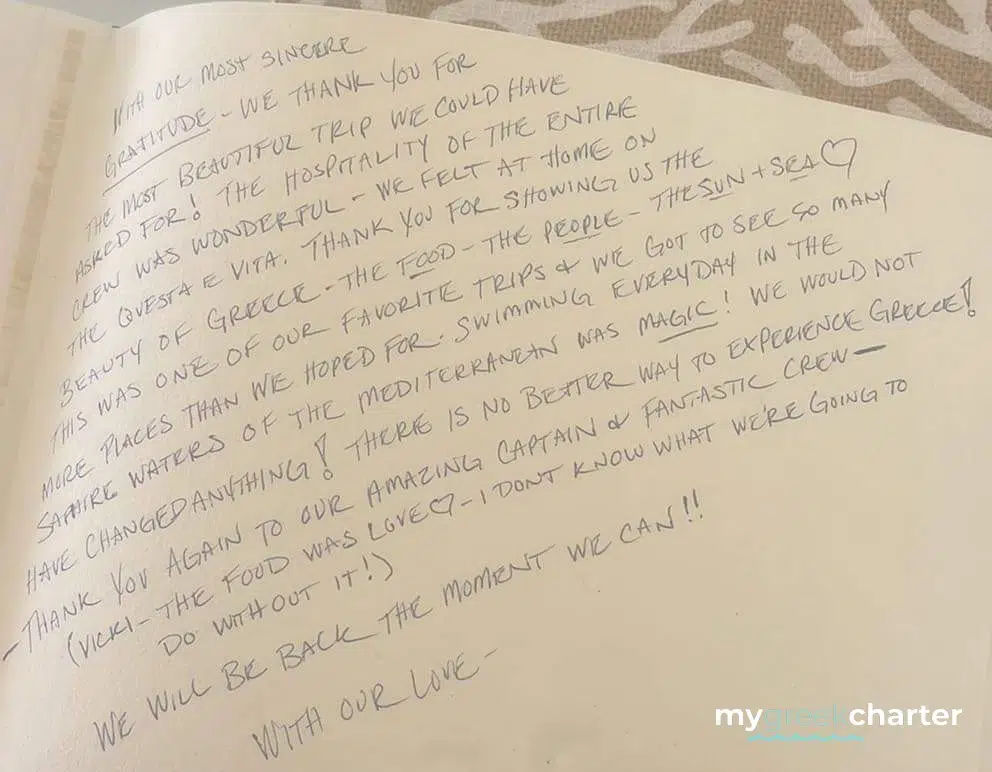 WITH OUR MOST SINCERE
GRATITUDE - WE THANK YOU FOR
THE MOST BEAUTIFUL TRIP WE COULD HAVE
ASKED FOR! THE HOSPITALITY OF THE ENTIRE
CREW WAS WONDERFUL - WE FELT AT HOME ON
THE QUESTA E VITA. THANK YOU FOR SHOWING US THE
BEAUTY OF GREECE - THE FOOD - THE PEOPLE - THE SUN + SEA ♡
THIS WAS ONE OF OUR FAVORITE TRIPS & WE GOT TO SEE SO MANY
MORE PLACES THAN WE HOPED FOR. SWIMMING EVERYDAY IN THE
SAPHIRE WATERS OF THE MEDITERRANEAN WAS MAGIC! WE WOULD NOT
HAVE CHANGED ANYTHING! THERE IS NO BETTER WAY TO EXPERIENCE GREECE!
- THANK YOU AGAIN TO OUR AMAZING CAPTAIN & FANTASTIC CREW -
(VICKI - THE FOOD WAS LOVE ♡ - I DONT KNOW WHAT WE'RE GOING TO
DO WITHOUT IT!)
WE WILL BE BACK THE MOMENT WE CAN!!
WITH OUR LOVE -
mygreekcharter